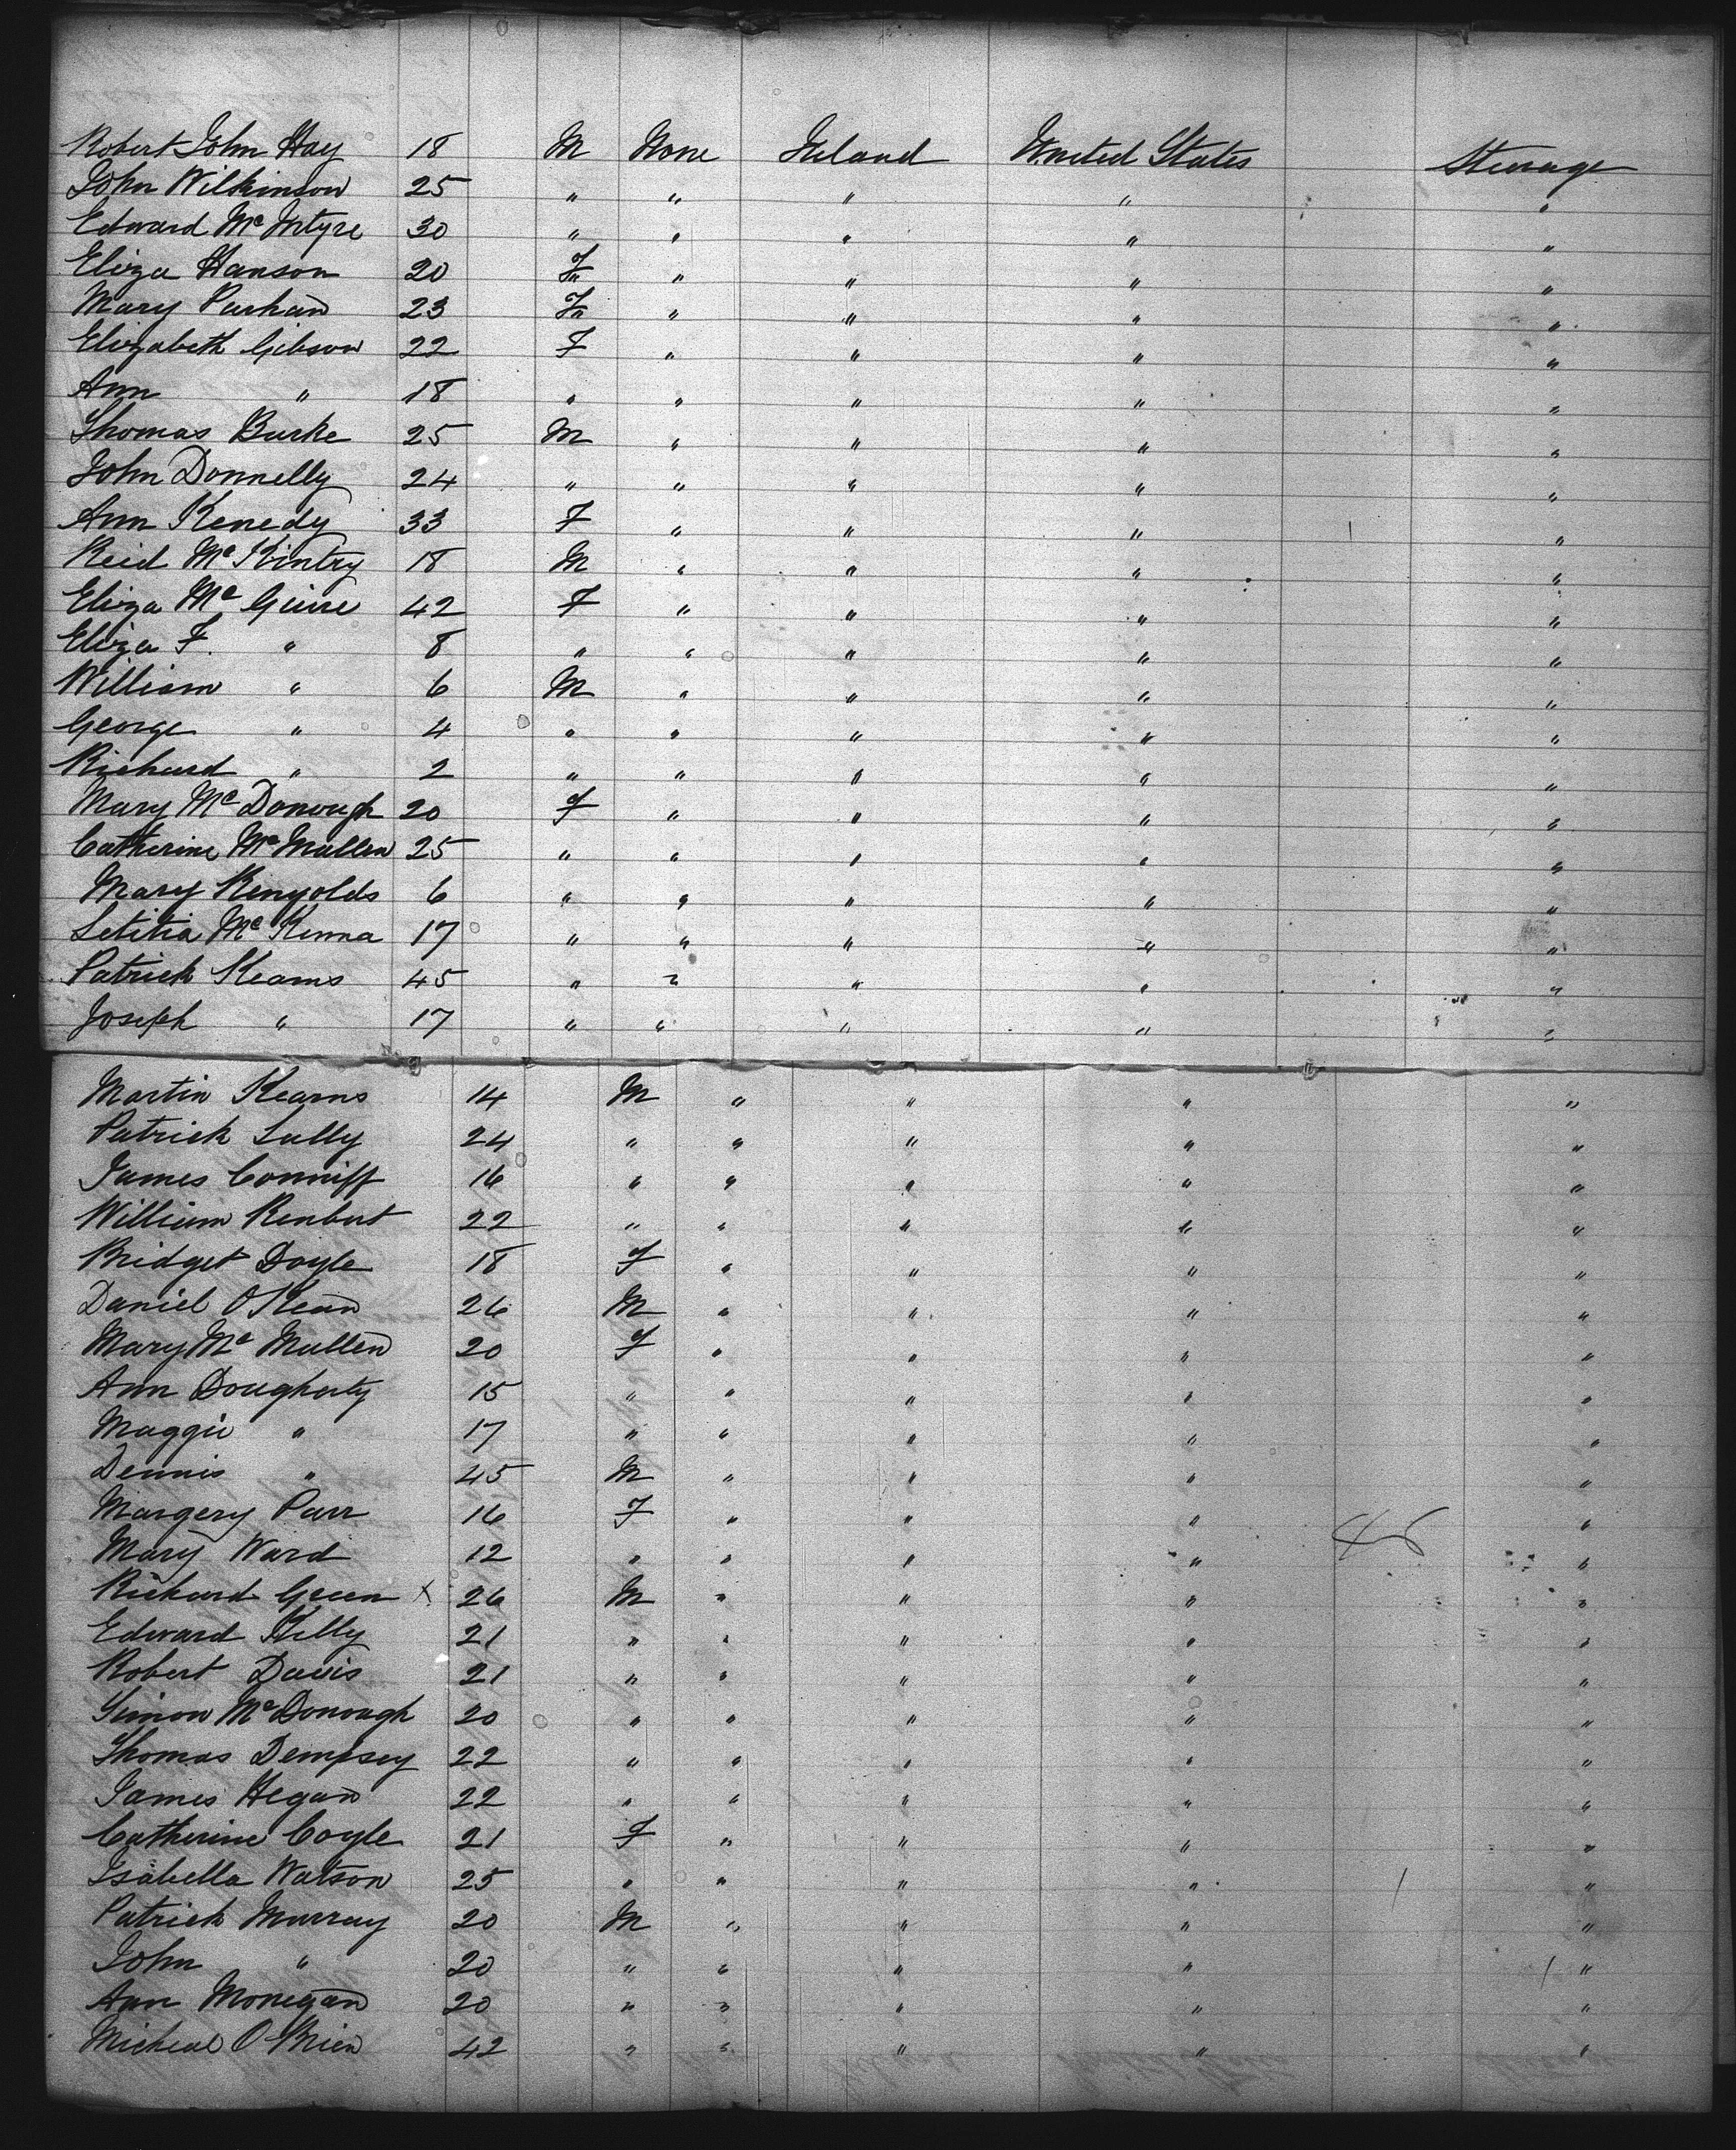 Robert John Hay 18 M None Ireland United States Steerage
John Wilkinson 25 " " " " "
Edward McIntyre 30 " " " " "
Eliza Hanson 20 F " " " "
Mary 23 F " " " "
Elizabeth Gibson 22 F " " " "
Ann " 18 " " " " "
Thomas Burke 25 M " " " "
John Donnelly 24 " " " " "
Ann Kenedy 33 F " " " "
Reid McKintry 18 M " " " "
Eliza McGuire 42 F " " " "
Eliza F. " 8 " " " " "
William " 6 M " " " "
George " 4 " " " " "
Richard " 2 " " " " "
Mary McDonough 20 F " " " "
Catherine McMullen 25 " " " " "
Mary Renyolds 6 " " " " "
Letitia McKenna 17 " " " " "
Patrick Kearns 45 " " " " "
Joseph " 17 " " " " "
Martin Kearns 14 M " " " "
Patrick Lally 24 " " " " "
James Conniff 16 " " " " "
William 22 " " " " "
Bridget Doyle 18 F " " " "
Daniel O'Kean 26 M " " " "
Mary McMullen 20 F " " " "
Ann Dougherty 15 " " " " "
Maggie " 17 " " " " "
Dennis " 45 M " " " "
Margery Parr 16 F " " " "
Mary Ward 12 " " " " "
Richard Green X 26 M " " " "
Edward Kelly 21 " " " " "
Robert Davis 21 " " " " "
Simon McDonough 20 " " " " "
Thomas Dempsey 22 " " " " "
James Hegan 22 " " " " "
Catherine Coyle 21 F " " " "
Isabella Watson 25 " " " " "
Patrick Murray 20 M " " " "
John " 20 " " " " "
Ann Monegan 20 " " " " "
Micheal O'Brien 42 " " " " "